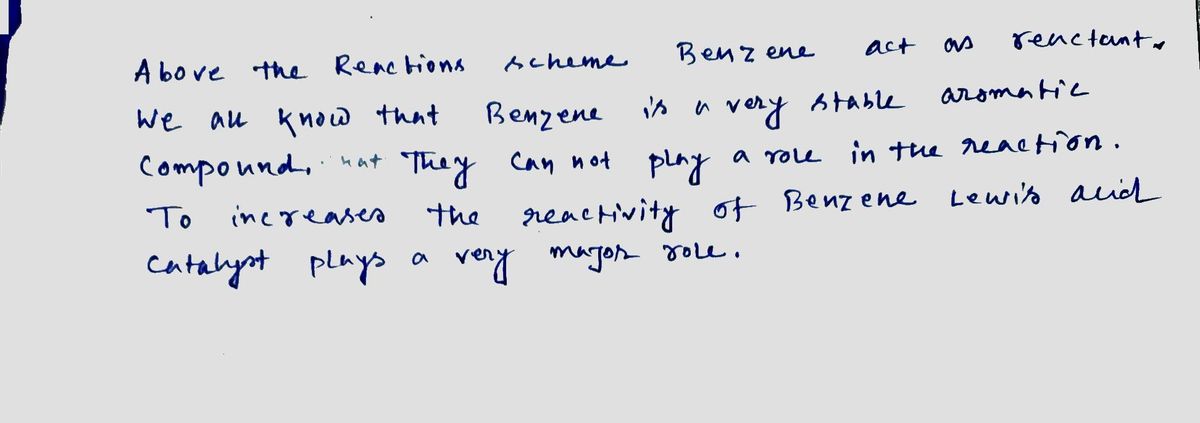 Above the Reactions scheme Benzene act as reactant.
We all know that Benzene is a very stable aromatic
Compound, that They can not play a role in the reaction.
To increases the reactivity of Benzene Lewis acid
catalyst plays a very major role.